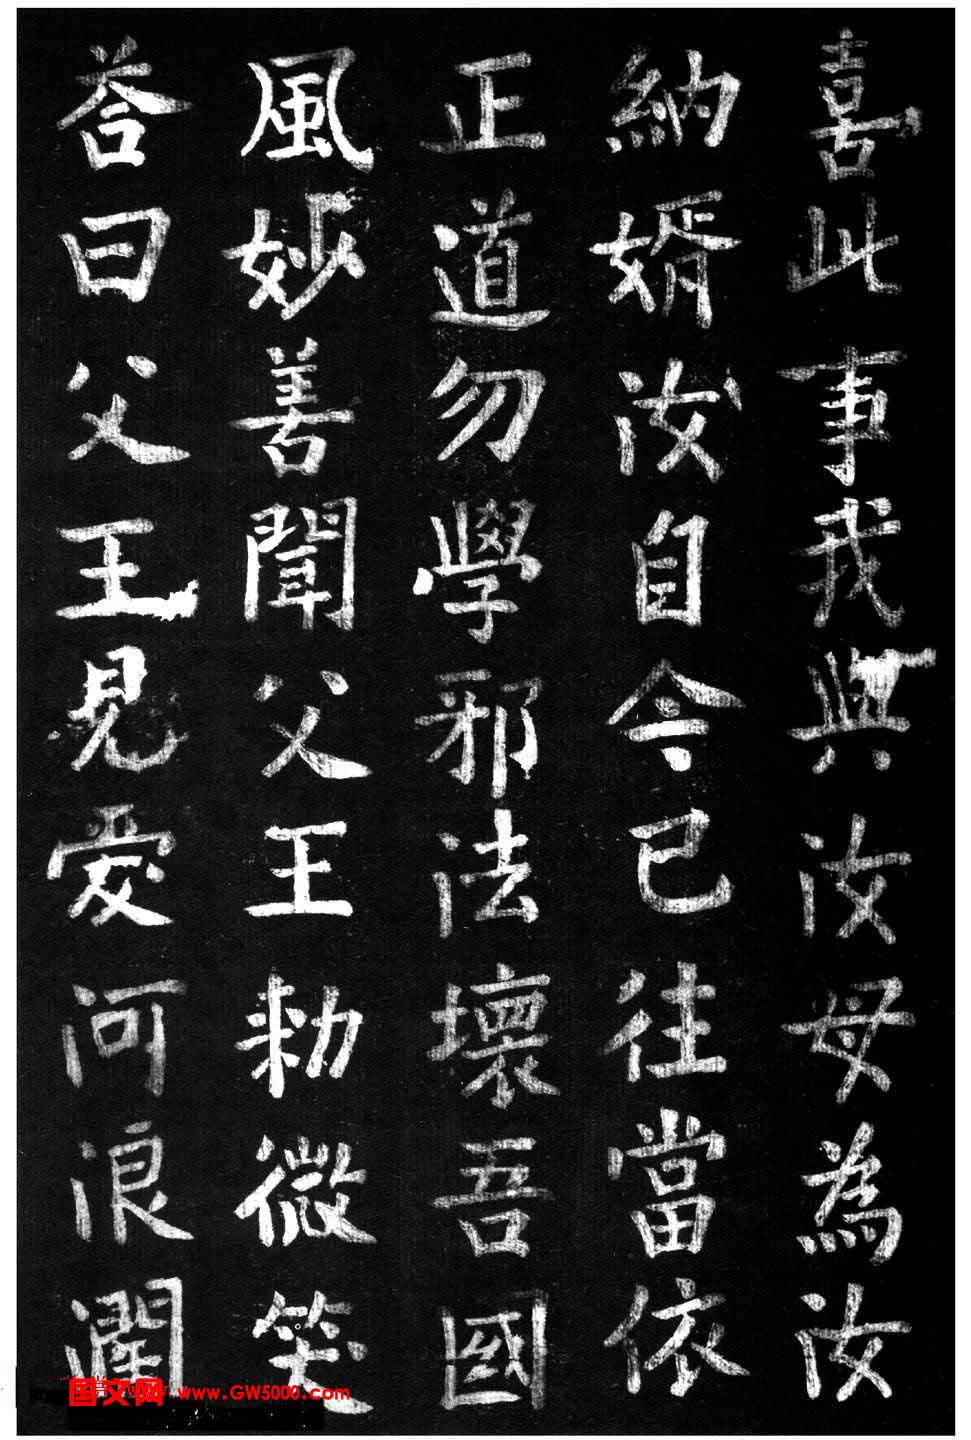 喜此事我與汝母為汝
納婿汝自今已往當依
正道勿學邪法壞吾國
風妙善聞父王勑微笑
荅曰父王見愛河浪闊
国文网 www.GW5000.com